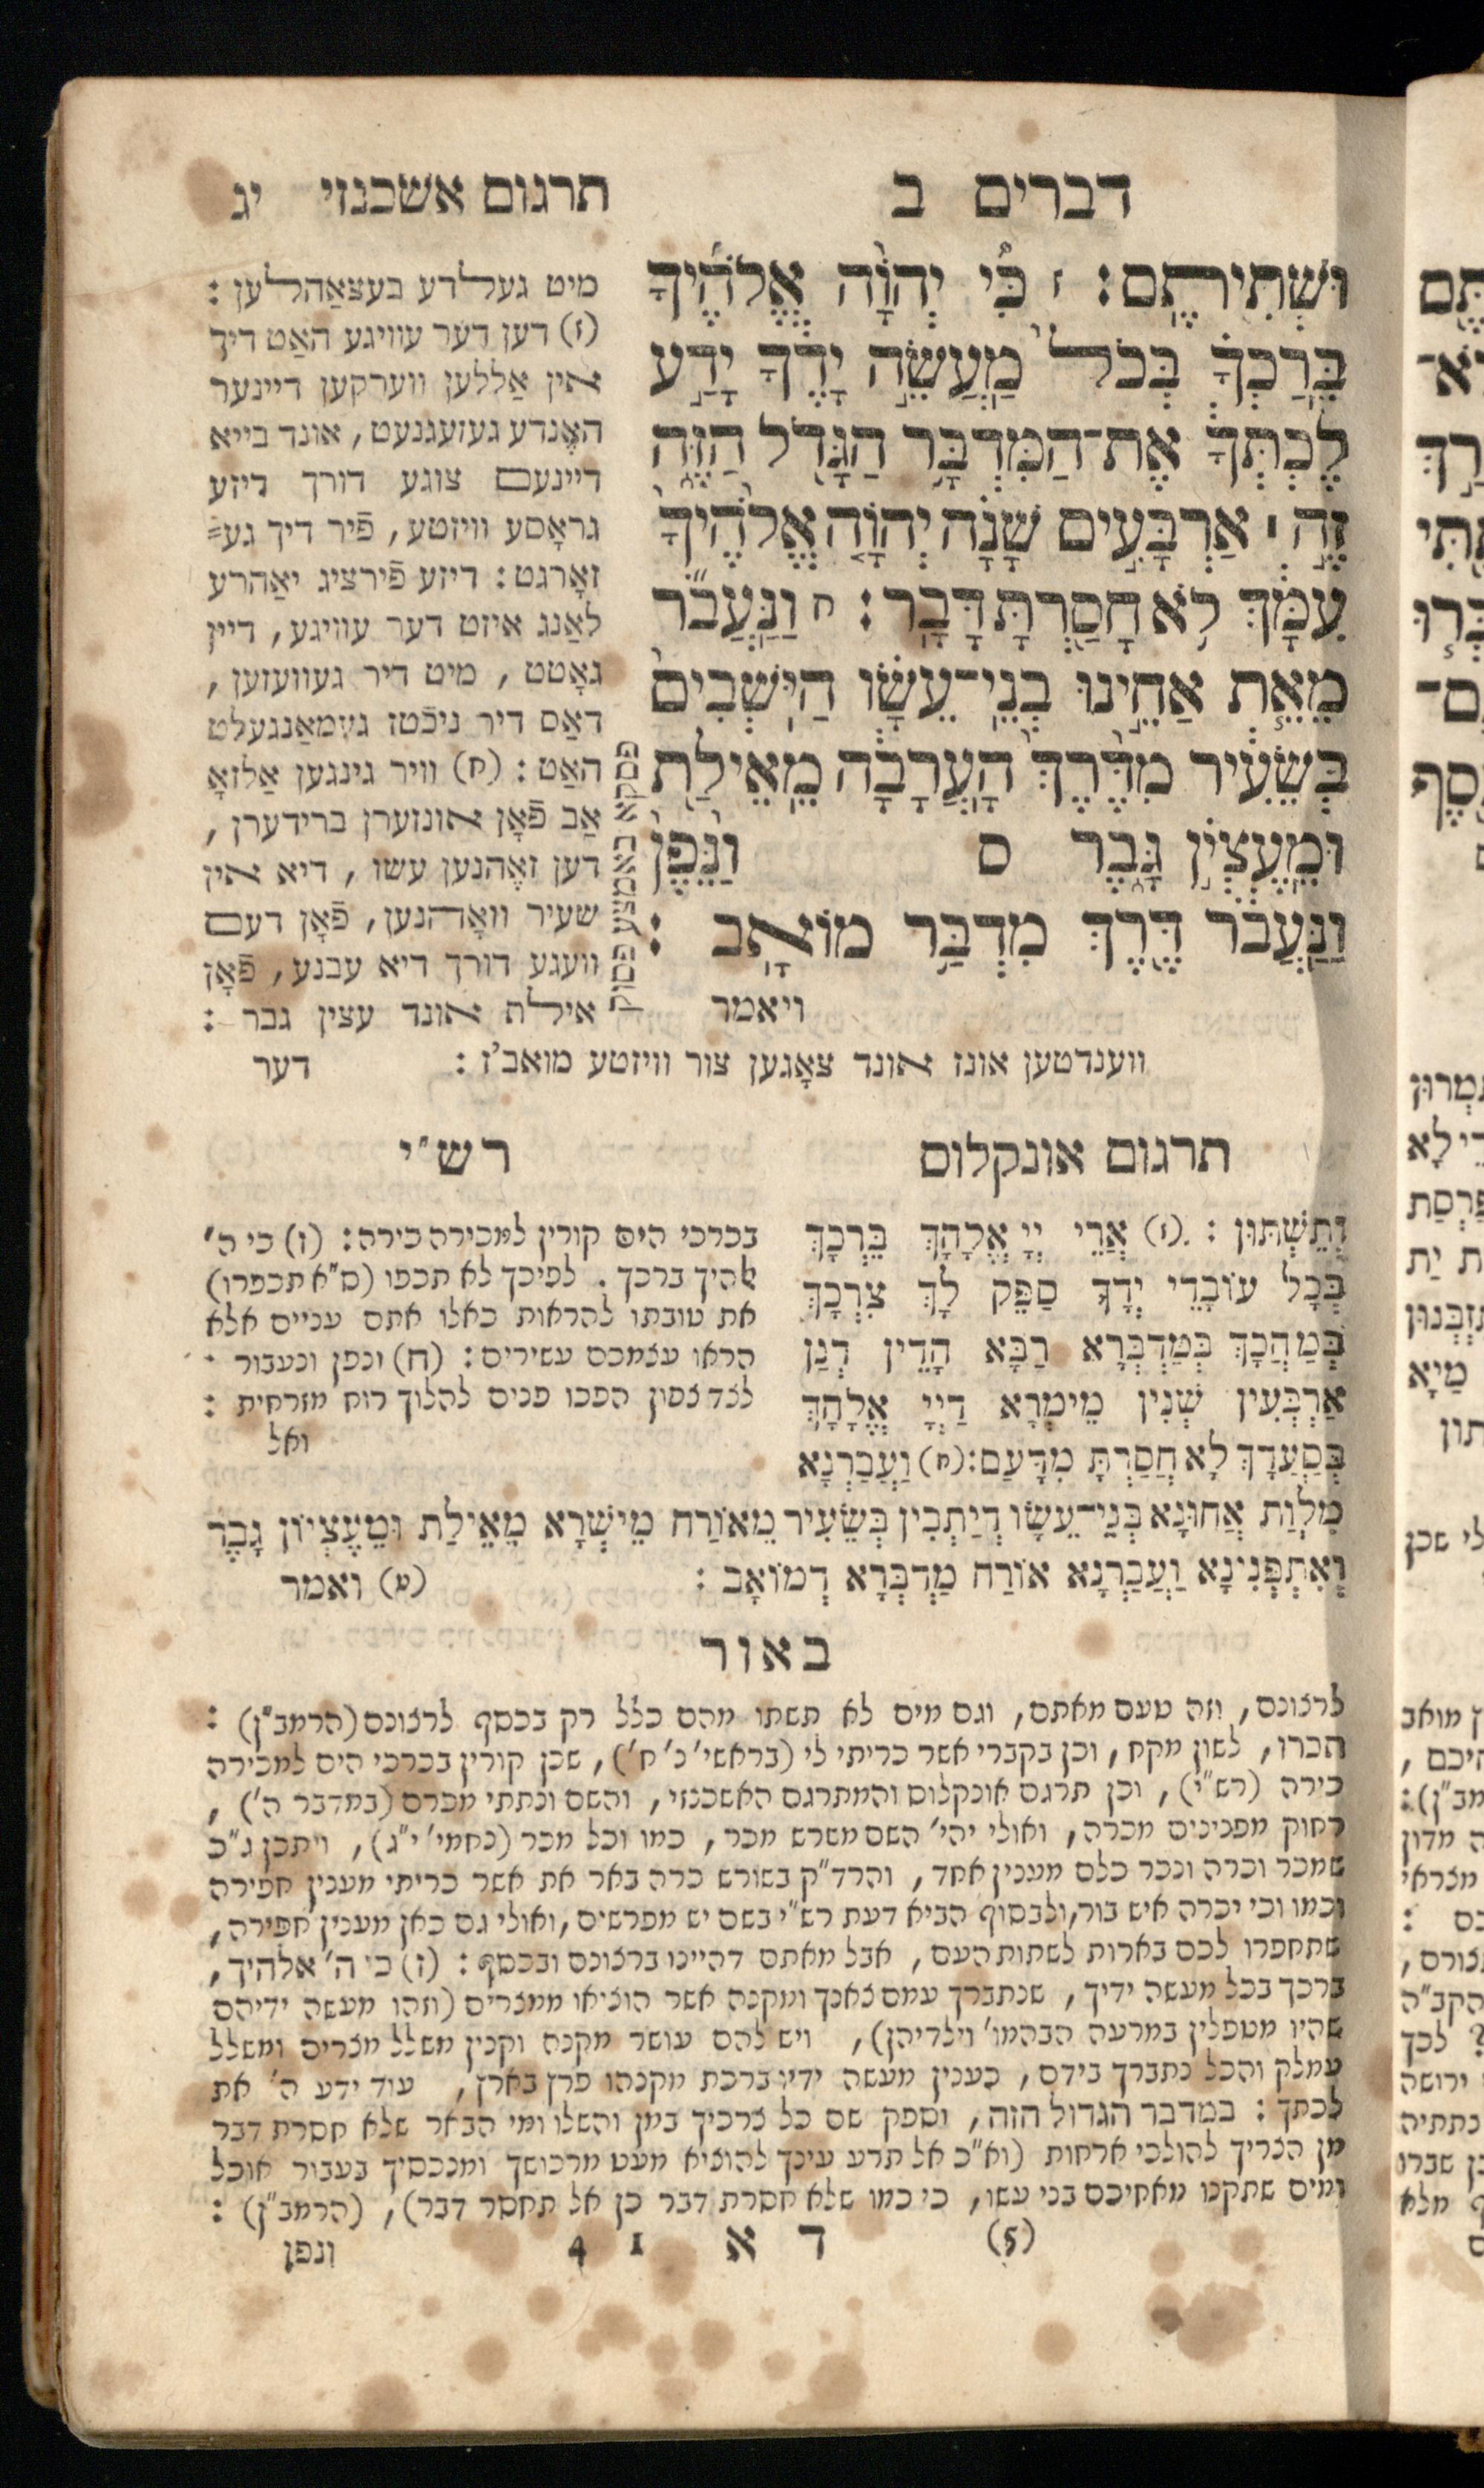 דברים ב
תרגום אשכנזי יג
וּשְׁתִיתֶֽם׃ ז כִּי יְהוָֹה אֱלֹהֶיךָ
בֵּרַכְךָ בְּכֹל מַעֲשֵׂה יָדֶךָ יָדַע
לֶכְתְּךָ אֶת־הַמִּדְבָּר הַגָּדֹל הַזֶּה
זֶה ׀ אַרְבָּעִים שָׁנָה יְהוָֹה אֱלֹהֶיךָ
עִמָּךְ לֹא חָסַרְתָּ דָּבָר׃ ח וַנַּעֲבֹר
מֵאֵת אַחֵינוּ בְנֵי־עֵשָׂו הַיֹּשְׁבִים
בְּשֵׂעִיר מִדֶּרֶךְ הָעֲרָבָה מֵאֵילַת
וּמֵעֶצְיֹן גָּבֶר ס וַנֵּפֶן
וַנַּעֲבֹר דֶּרֶךְ מִדְבַּר מוֹאָב׃
ויאמר
פסקא באמצע פסוק
מיט געלדע בעצאַהלען:
(ז) דען דער עוויגע האַט דיך
אין אַללען ווערקען דיינער
האֶנדע געזעגנעט, אונד בייא
דיינעם צוגע דורך דיזע
גראָסע וויזטע, פֿיר דיך גע=
זאָרגט: דיזע פֿירציג יאַהרע
לאַנג איזט דער עוויגע, דיין
גאָטט, מיט דיר געוועזען,
דאַס דיר ניכֿטז געמאַנגעלט
האַט: (ח) וויר גינגען אַלזאָ
אַב פֿאָן אונזערן ברידערן,
דען זאֶהנען עשו, דיא אין
שעיר וואָהנען, פֿאָן דעם
וועגע דורך דיא עבנע, פֿאָן
אילת אונד עצין גבר:
ווענדטען אונז אונד צאָגען צור וויזטע מואב'ז: דער
תרגום אונקלוס
וְתֵשְׁתּוּן: (ז) אֲרֵי יְיָ אֱלָהָךְ בֵּרְכָךְ
בְּכָל עוֹבָדֵי יְדָךְ סַפֵּק לָךְ צִרְכָךְ
בִּמְהָכָךְ בְּמַדְבְּרָא רַבָּא הָדֵין דְנַן
אַרְבְּעִין שְׁנִין מֵימְרָא דַיְיָ אֱלָהָךְ
בְּסַעֲדָךְ לָא חֲסַרְתָּ מִדָּעַם: (ח) וַעֲבַרְנָא
מִלְוַת אֲחוּנָא בְּנֵי־עֵשָׂו דְיַתְבִין בְּשֵׂעִיר מֵאוֹרַח מֵישְׁרָא מֵאֵילַת וּמֵעֶצְיוֹן גָבֶר
וְאִתְפְּנִינָא וַעֲבַרְנָא אוֹרַח מַדְבְּרָא דְמוֹאָב: (ט) ואמר
רש״י
בכרכי הים קורין למכירה כירה: (ז) כי ה'
אלהיך ברכך. לפיכך לא תכפו (ס״א תכפרו)
את טובתו להראות כאלו אתם עניים אלא
הראו עצמכם עשירים: (ח) ונפן ונעבור.
לצד צפון הפכו פנים להלוך רוח מזרחית:
ואל
באור
לרצונם, וזה טעם מאתם, וגם מים לא תשתו מהם כלל רק בכסף לרצונם (הרמב״ן):
תכרו, לשון מקח, וכן בקברי אשר כריתי לי (בראשי' נ' ח'), שכן קורין בכרכי הים למכירה
כירה (רש״י), וכן תרגם אונקלוס והמתרגם האשכנזי, והשם ונתתי מכרם (במדבר ה'),
רחוק מפנינים מכרה, ואולי יהי' השם משרש מכר, כמו וכל מכר (נחמי' י״ג), ויתכן ג״כ
שמכר וכרה ונכר כלם מענין אחד, והרד״ק בשורש כרה באר את אשר כריתי מענין חפירה
וכמו וכי יכרה איש בור, ולבסוף הביא דעת רש״י בשם יש מפרשים, ואולי גם כאן מענין חפירה,
שתחפרו לכם בארות לשתות העם, אבל מאתם דהיינו ברצונם ובכסף: (ז) כי ה' אלהיך,
ברכך בכל מעשה ידיך, שנתברך עמם צאנך ומקנה אשר הוציאו ממצרים (וזהו מעשה ידיהם
שהיו מטפלין במרעה הבהמו' וילדיהן), ויש להם עושר מקנה וקנין משלל מצרים ומשלל
עמלק והכל נתברך בידם, כענין מעשה ידיו ברכת מקנהו פרץ בארץ, עוד ידע ה' את
לכתך: במדבר הגדול הזה, וספק שם כל צרכיך במן והשלו ומי הבאר שלא חסרת דבר
מן הצריך להולכי ארחות (וא״כ אל תרע עינך להוציא מעט מרכושך ומנכסיך בעבור אוכל
ומים שתקנו מאחיכם בני עשו, כי כמו שלא חסרת דבר כן אל תחסר דבר), (הרמב״ן):
(5) ד א 1 4 ונפן